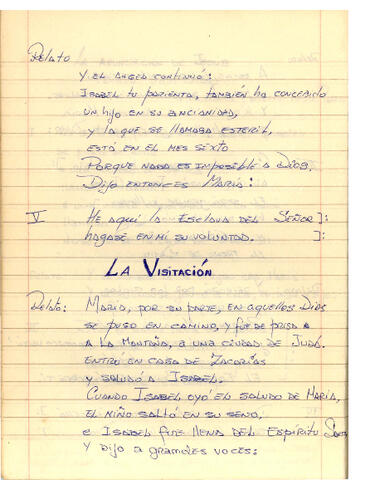 Relato
Y EL ANGEL CONTINUÓ:
ISABEL TU PARIENTA, TAMBIÉN HA CONCEBIDO
UN HIJO EN SU ANCIANIDAD,
Y LA QUE SE LLAMABA ESTERIL,
ESTÁ EN EL MES SEXTO
PORQUE NADA ES IMPOSIBLE A DIOS.
DIJO ENTONCES MARIA:
V HE AQUI LA ESCLAVA DEL SEÑOR ]:
HAGASE EN MI SU VOLUNTAD. ]:
LA VISITACIÓN
Relato: MARIA, POR SU PARTE, EN AQUELLOS DIAS
SE PUSO EN CAMINO, Y FUE DE PRISA A
A LA MONTAÑA, A UNA CIUDAD DE JUDÁ.
ENTRÓ EN CASA DE ZACARÍAS
Y SALUDÓ A ISABEL.
CUANDO ISABEL OYÓ EL SALUDO DE MARIA,
EL NIÑO SALTÓ EN SU SENO,
E ISABEL FUE LLENA DEL ESPÍRITU SANTO
Y DIJO A GRANDES VOCES: